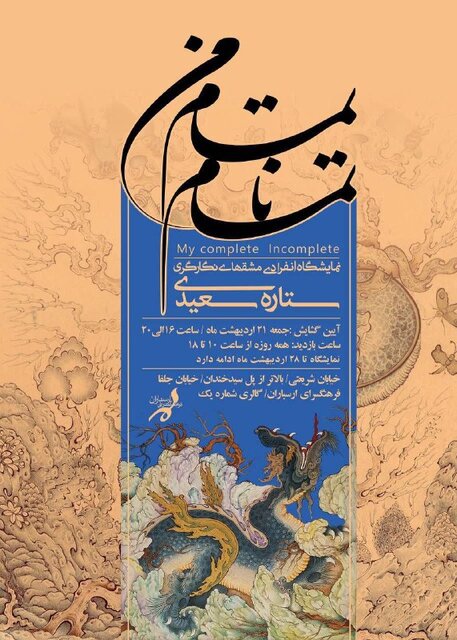 تمام ناتمام من
My complete Incomplete
نمایشگاه انفرادی مشق‌های نگارگری
ستاره سعیدی
آیین گشایش :جمعه ۲۱ اردیبهشت ماه / ساعت ۱۶ الی ۲۰
ساعت بازدید: همه روزه از ساعت ۱۰ تا ۱۸
نمایشگاه تا ۲۸ اردیبهشت ماه ادامه دارد
خیابان شریعتی/ بالاتر از پل سیدخندان/ خیابان جلفا
فرهنگسرای ارسباران/ گالری شماره یک